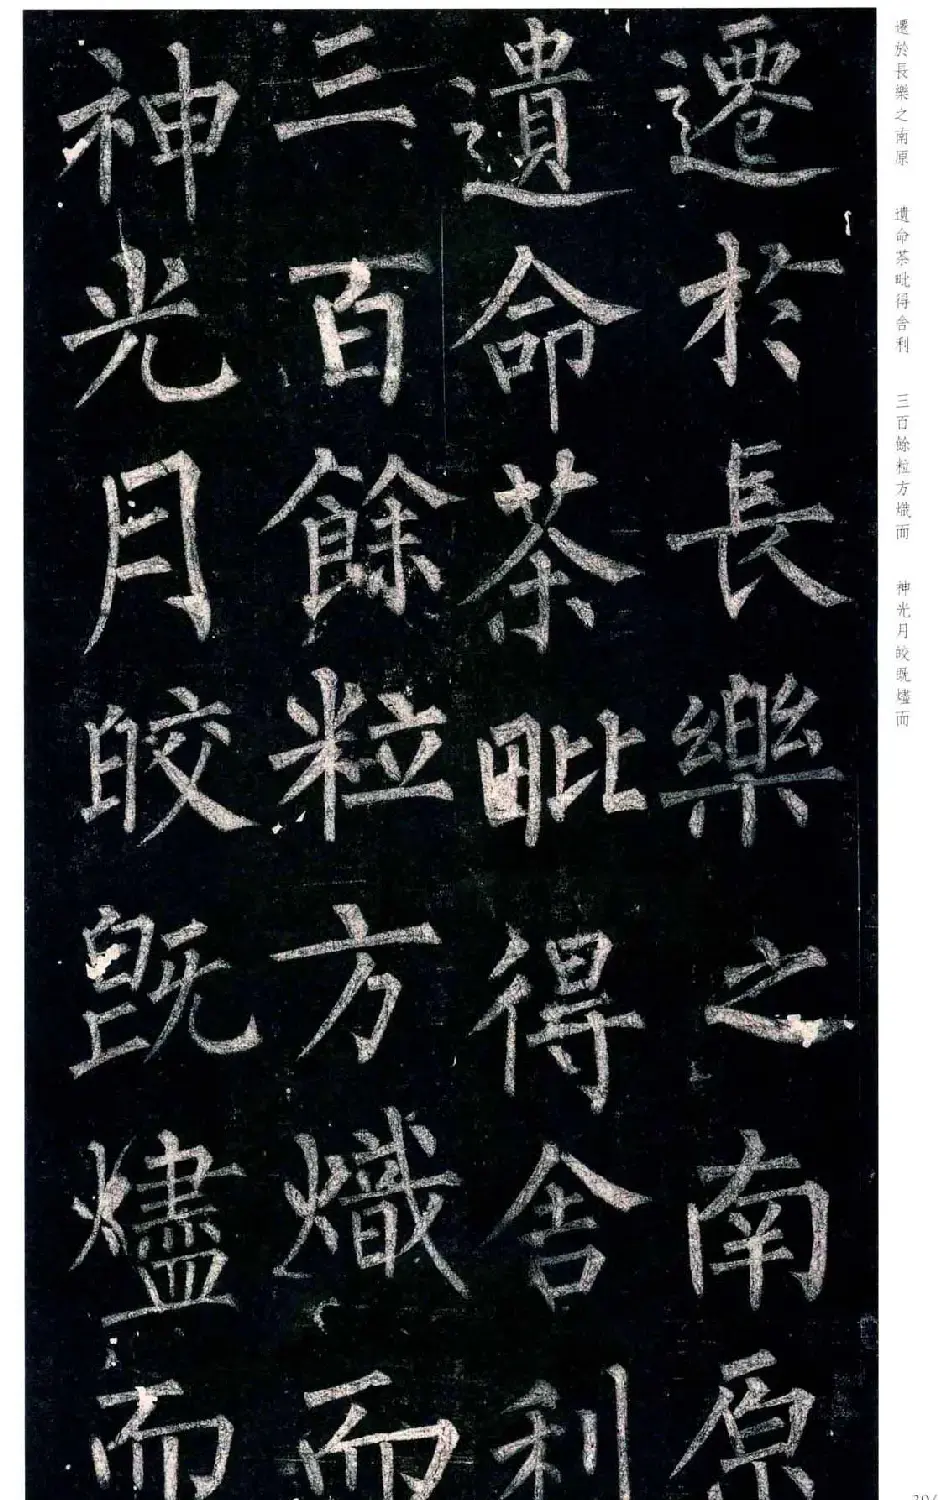 遷於長樂之南原
遺命茶毗得舍利
三百餘粒方熾而
神光月皎既燼而
遷於長樂之南原
遺命茶毗得舍利
三百餘粒方熾而
神光月皎既燼而